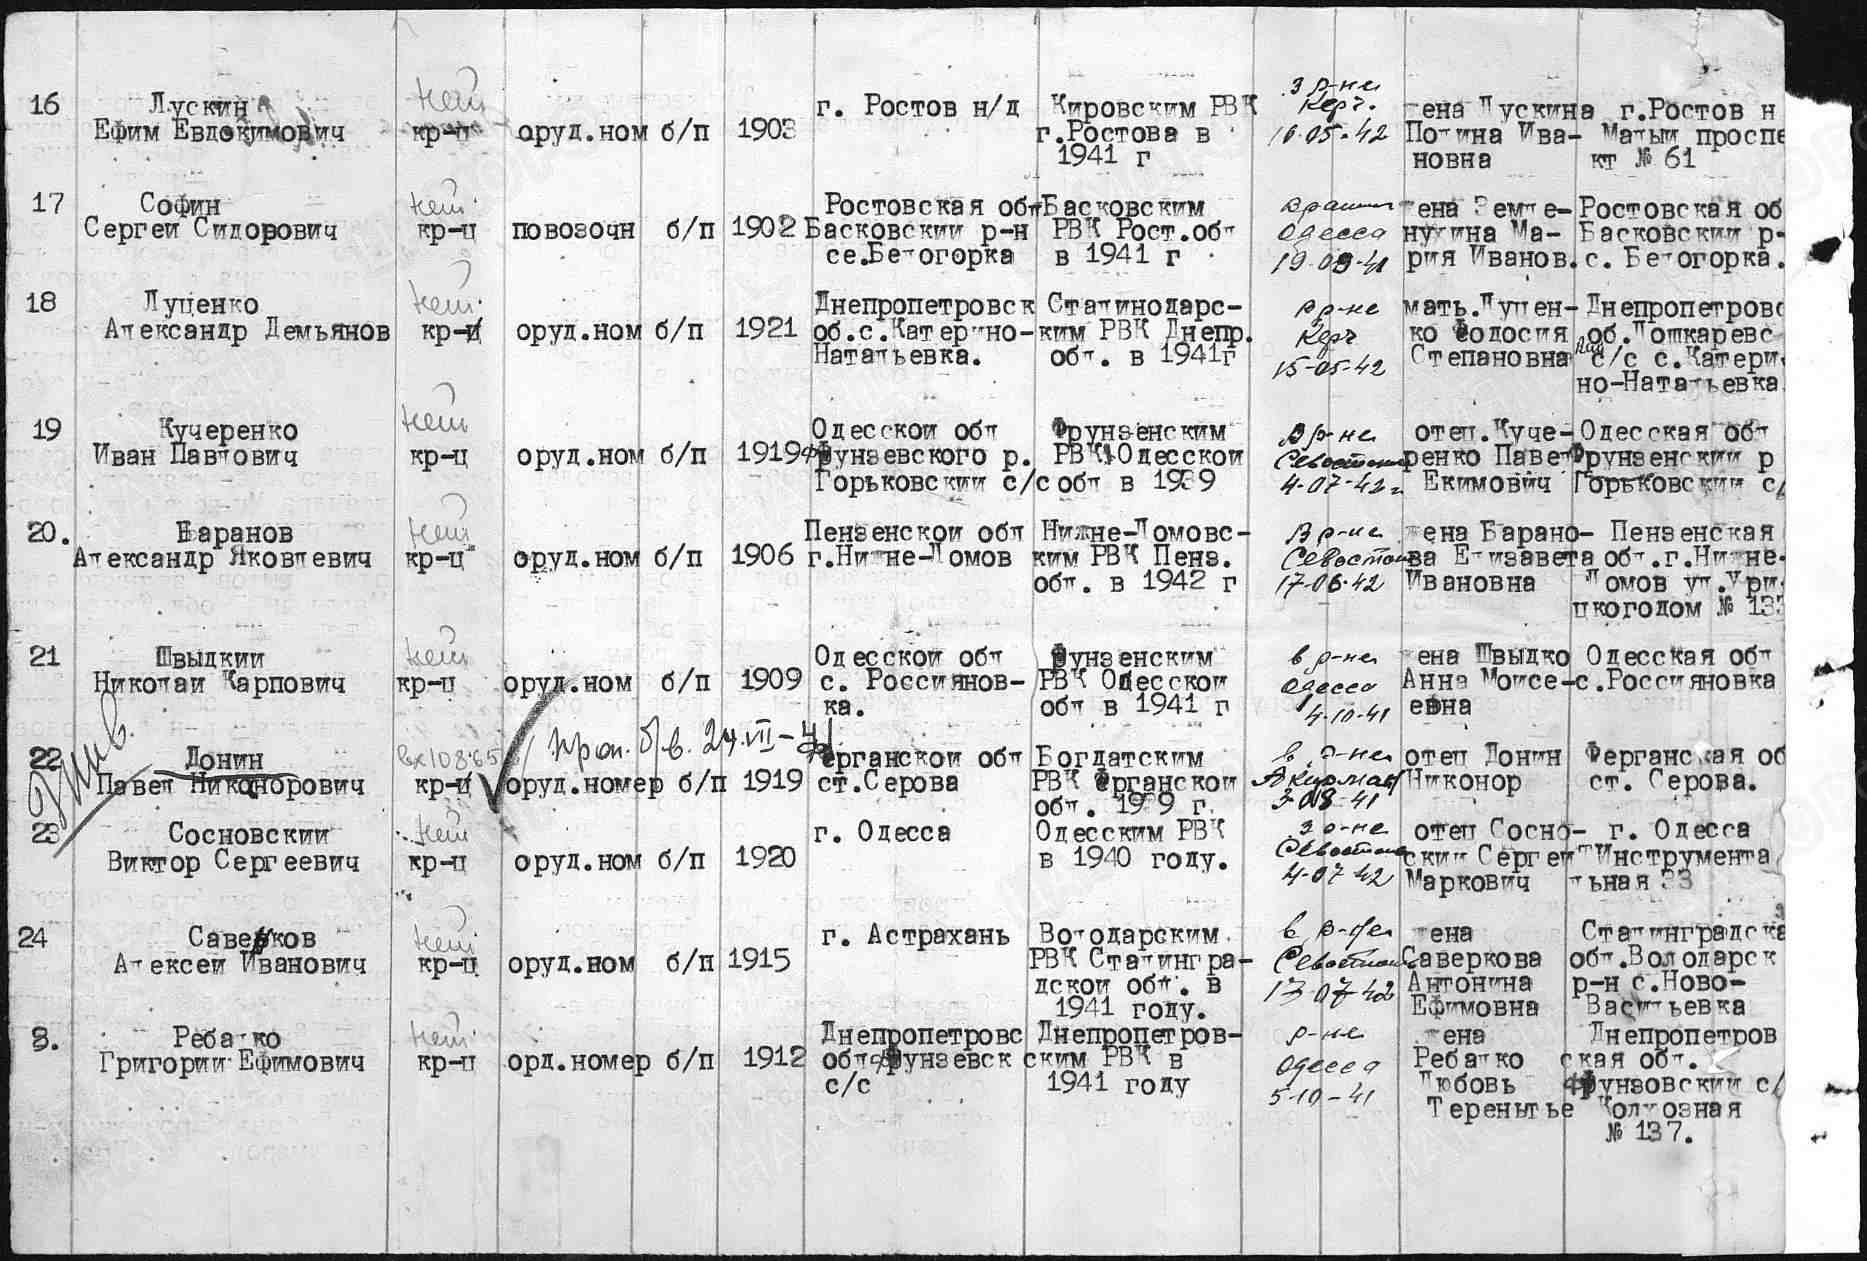 16 Лускин нет г. Ростов н/д Кировским РВК в р-не Керч. жена Лускина г.Ростов н
Ефим Евдокимович кр-ц оруд.ном б/п 1903 г.Ростова в 10-05-42 Полина Ива- Малый проспе
1941 г новна кт № 61
17 Софин нет Ростовская обл Басковским жена Земле- Ростовская об
Сергей Сидорович кр-ц повозочн б/п 1902 Басковский р-н РВК Рост.обл Одесса нухина Ма- Басковский р-
се.Белогорка в 1941 г 19-09-41 рия Иванов. с. Белогорка.
18 Луценко нет Днепропетровск Сталинодарс- в р-не мать.Луцен- Днепропетровс
Александр Демьянов кр-ц оруд.ном б/п 1921 об.с.Катерино- ким РВК Днепр. Керч ко Федосия об.Лошкаревс
Натальевка. обл. в 1941г 15-05-42 Степановна с/с с.Катери
но-Натальевка.
19 Кучеренко нет Одесской обл Фрунзенским в р-не отец.Куче- Одесская обл
Иван Павлович кр-ц оруд.ном б/п 1919 Фрунзевского р. РВК Одесской Севастоп ренко Павел Фрунзенский р
Горьковский с/с обл в 1939 4-07-42г Екимович Горьковский с/
20. Баранов нет Пензенской обл Нижне-Ломовс- в р-не жена Барано- Пензенская
Александр Яковлевич кр-ц оруд.ном б/п 1906 г.Нижне-Ломов ким РВК Пенз. Севастоп ва Елизавета обл.г.Нижне-
обл. в 1942 г 17-06-42 Ивановна Ломов ул.Ури-
цкогодом № 133
21 Швыдкий нет Одесской обл Фунзенским в р-не жена Швыдко Одесская обл
Николай Карпович кр-ц оруд.ном б/п 1909 с. Россиянов- РВК Одесской Одесса Анна Моисе- с.Россияновка
ка. обл в 1941 г 4-10-41 евна
Проп. б/в. 24.VII-41
22 Донин вх10865 Ферганской обл Богдатским в р-не отец Донин Ферганская об
Павел Никонорович кр-ц оруд.номер б/п 1919 ст.Серова РВК Ферганской Никонор ст. Серова.
обл. 1939 г. 3-08-41
23 Сосновский нет г. Одесса Одесским РВК в р-не отец Сосно- г. Одесса
Виктор Сергеевич кр-ц оруд.ном б/п 1920 в 1940 году. Севастоп ский Сергей Инструмента
4-07-42 Маркович льная 33
24 Саверков нет г. Астрахань Володарским в р-не жена Сталинградска
Алексей Иванович кр-ц оруд.ном б/п 1915 РВК Сталингра- Севастоп Саверкова обл.Володарск
дской обл. в 17-07-42 Антонина р-н с.Ново-
1941 году. Ефимовна Васильевка
8. Ребалко нет Днепропетровс Днепропетров- р-не жена Днепропетров
Григорий Ефимович кр-ц орд.номер б/п 1912 обл Фрунзевск ским РВК в Одесса Ребалко ская обл.
с/с 1941 году 5-10-41 Любовь Фрунзовский с/
Терентье Колхозная
№ 137.